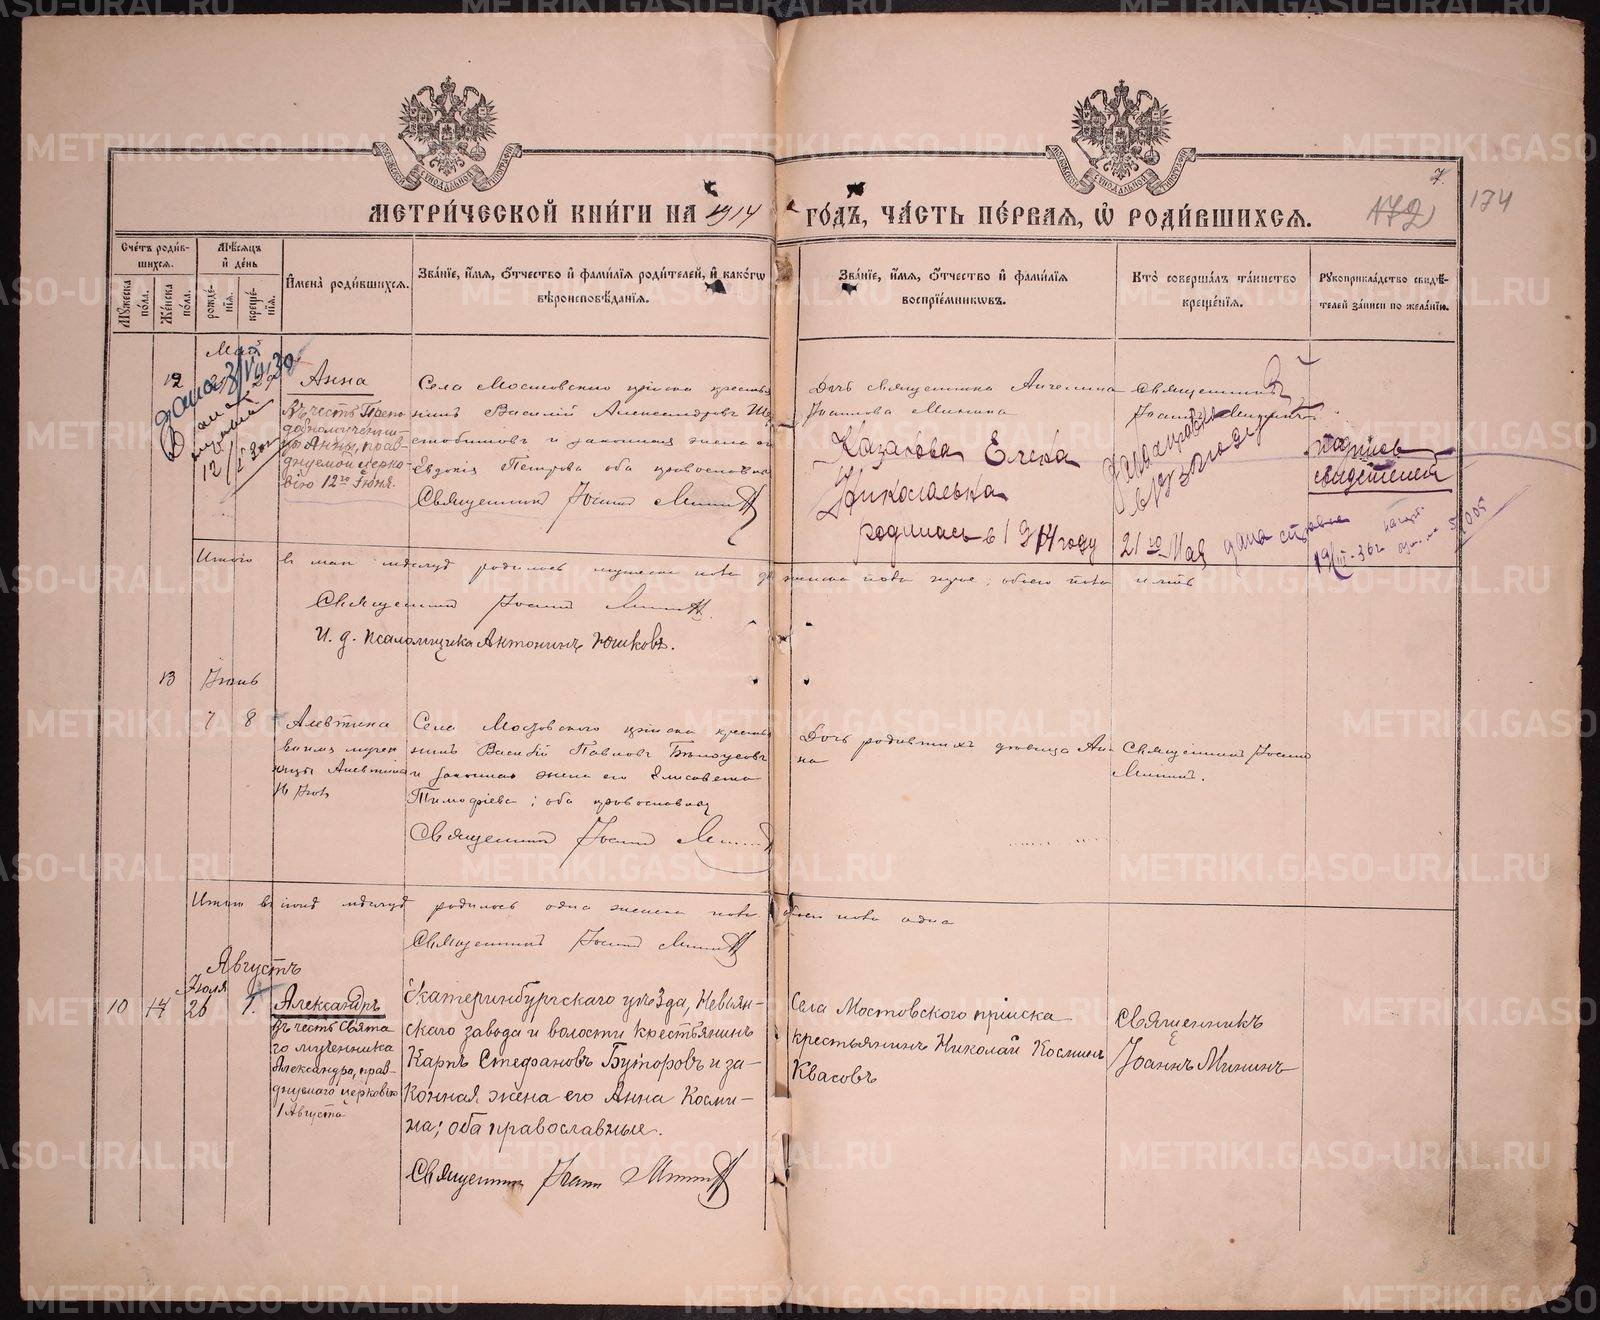 МЕТРИ́ЧЕСКОЙ КНИ́ГИ НА 1914 ГО́ДЪ, ЧА́СТЬ ПЕ́РВАЯ, Ѡ РОДИ́ВШИХСЯ.
7.
172
174
Сче́тъ роди́в-
шихся.
Мѣ́сяцъ
и҆ де́нь
Му́жеска
по́ла.
Же́нска
по́ла.
рожде́-
нїя.
креще́-
нїя.
И҆мена̀ роди́вшихся.
Зва́нїе, и҆́мя, ѻ҆́тчество и҆ фами́лїя роди́телей, и҆ како́гѡ
вѣроисповѣ́данїя.
Зва́нїе, и҆́мя, ѻ҆́тчество и҆ фами́лїя
воспрїе́мниковъ.
Кто̀ соверша́лъ та́инство
креще́нїя.
Рꙋкоприкла́дство свидѣ́-
телей за́писи по жела́нїю.
Май
12
Анна
Въ честь Препо-
добномученни-
цы Анны, праз-
днуемой церко-
вію 12го Іюня.
Села Мостовского пріиска крестья-
нинъ Василій Александровъ
и законная жена его
Евдокія Петрова оба православны
Священникъ Іоаннъ Мининъ
Дочь священника Ангелина
Іоаннова Минина
Священникъ
Іоаннъ Мининъ
Казакова Елена
Николаевна
родилась в 1914 году
21го Мая дана справка
подпись
свидетелей
12/V 30г
Итого в мае месяце родилось мужеска пола два женска пола три; обоего пола пять
Священникъ Іоаннъ Мининъ
И. д. псаломщика Антонинъ Юшковъ.
13
Іюнь
7 8
Алевтина
Села Мостовского пріиска крестья-
нинъ Василій Павловъ Бѣлоусовъ
и законная жена его Елисавета
Тимофѣева; оба православны
Священникъ Іоаннъ Мининъ
Дочь родившихъ девица Ан-
на
Священникъ Іоаннъ
Мининъ.
Итого въ іюне месяце родилось одна женска пола обоего пола одна
Священникъ Іоаннъ Мининъ
Августъ
Іюля
10 14 26 1.
Александръ
Въ честь Свята-
го мученника
Александра, праз-
днуемаго церковію
1 Августа
Екатеринбургскаго уѣзда, Невьян-
скаго завода и волости крестьянинъ
Карпъ Стефановъ Буторовъ и за-
конная жена его Анна Косми-
на; оба православные.
Священникъ Іоаннъ Мининъ
Села Мостовского пріиска
крестьянинъ Николай Косминъ
Квасовъ
Священникъ
Іоаннъ Мининъ
METRIKI.GASO-URAL.RU